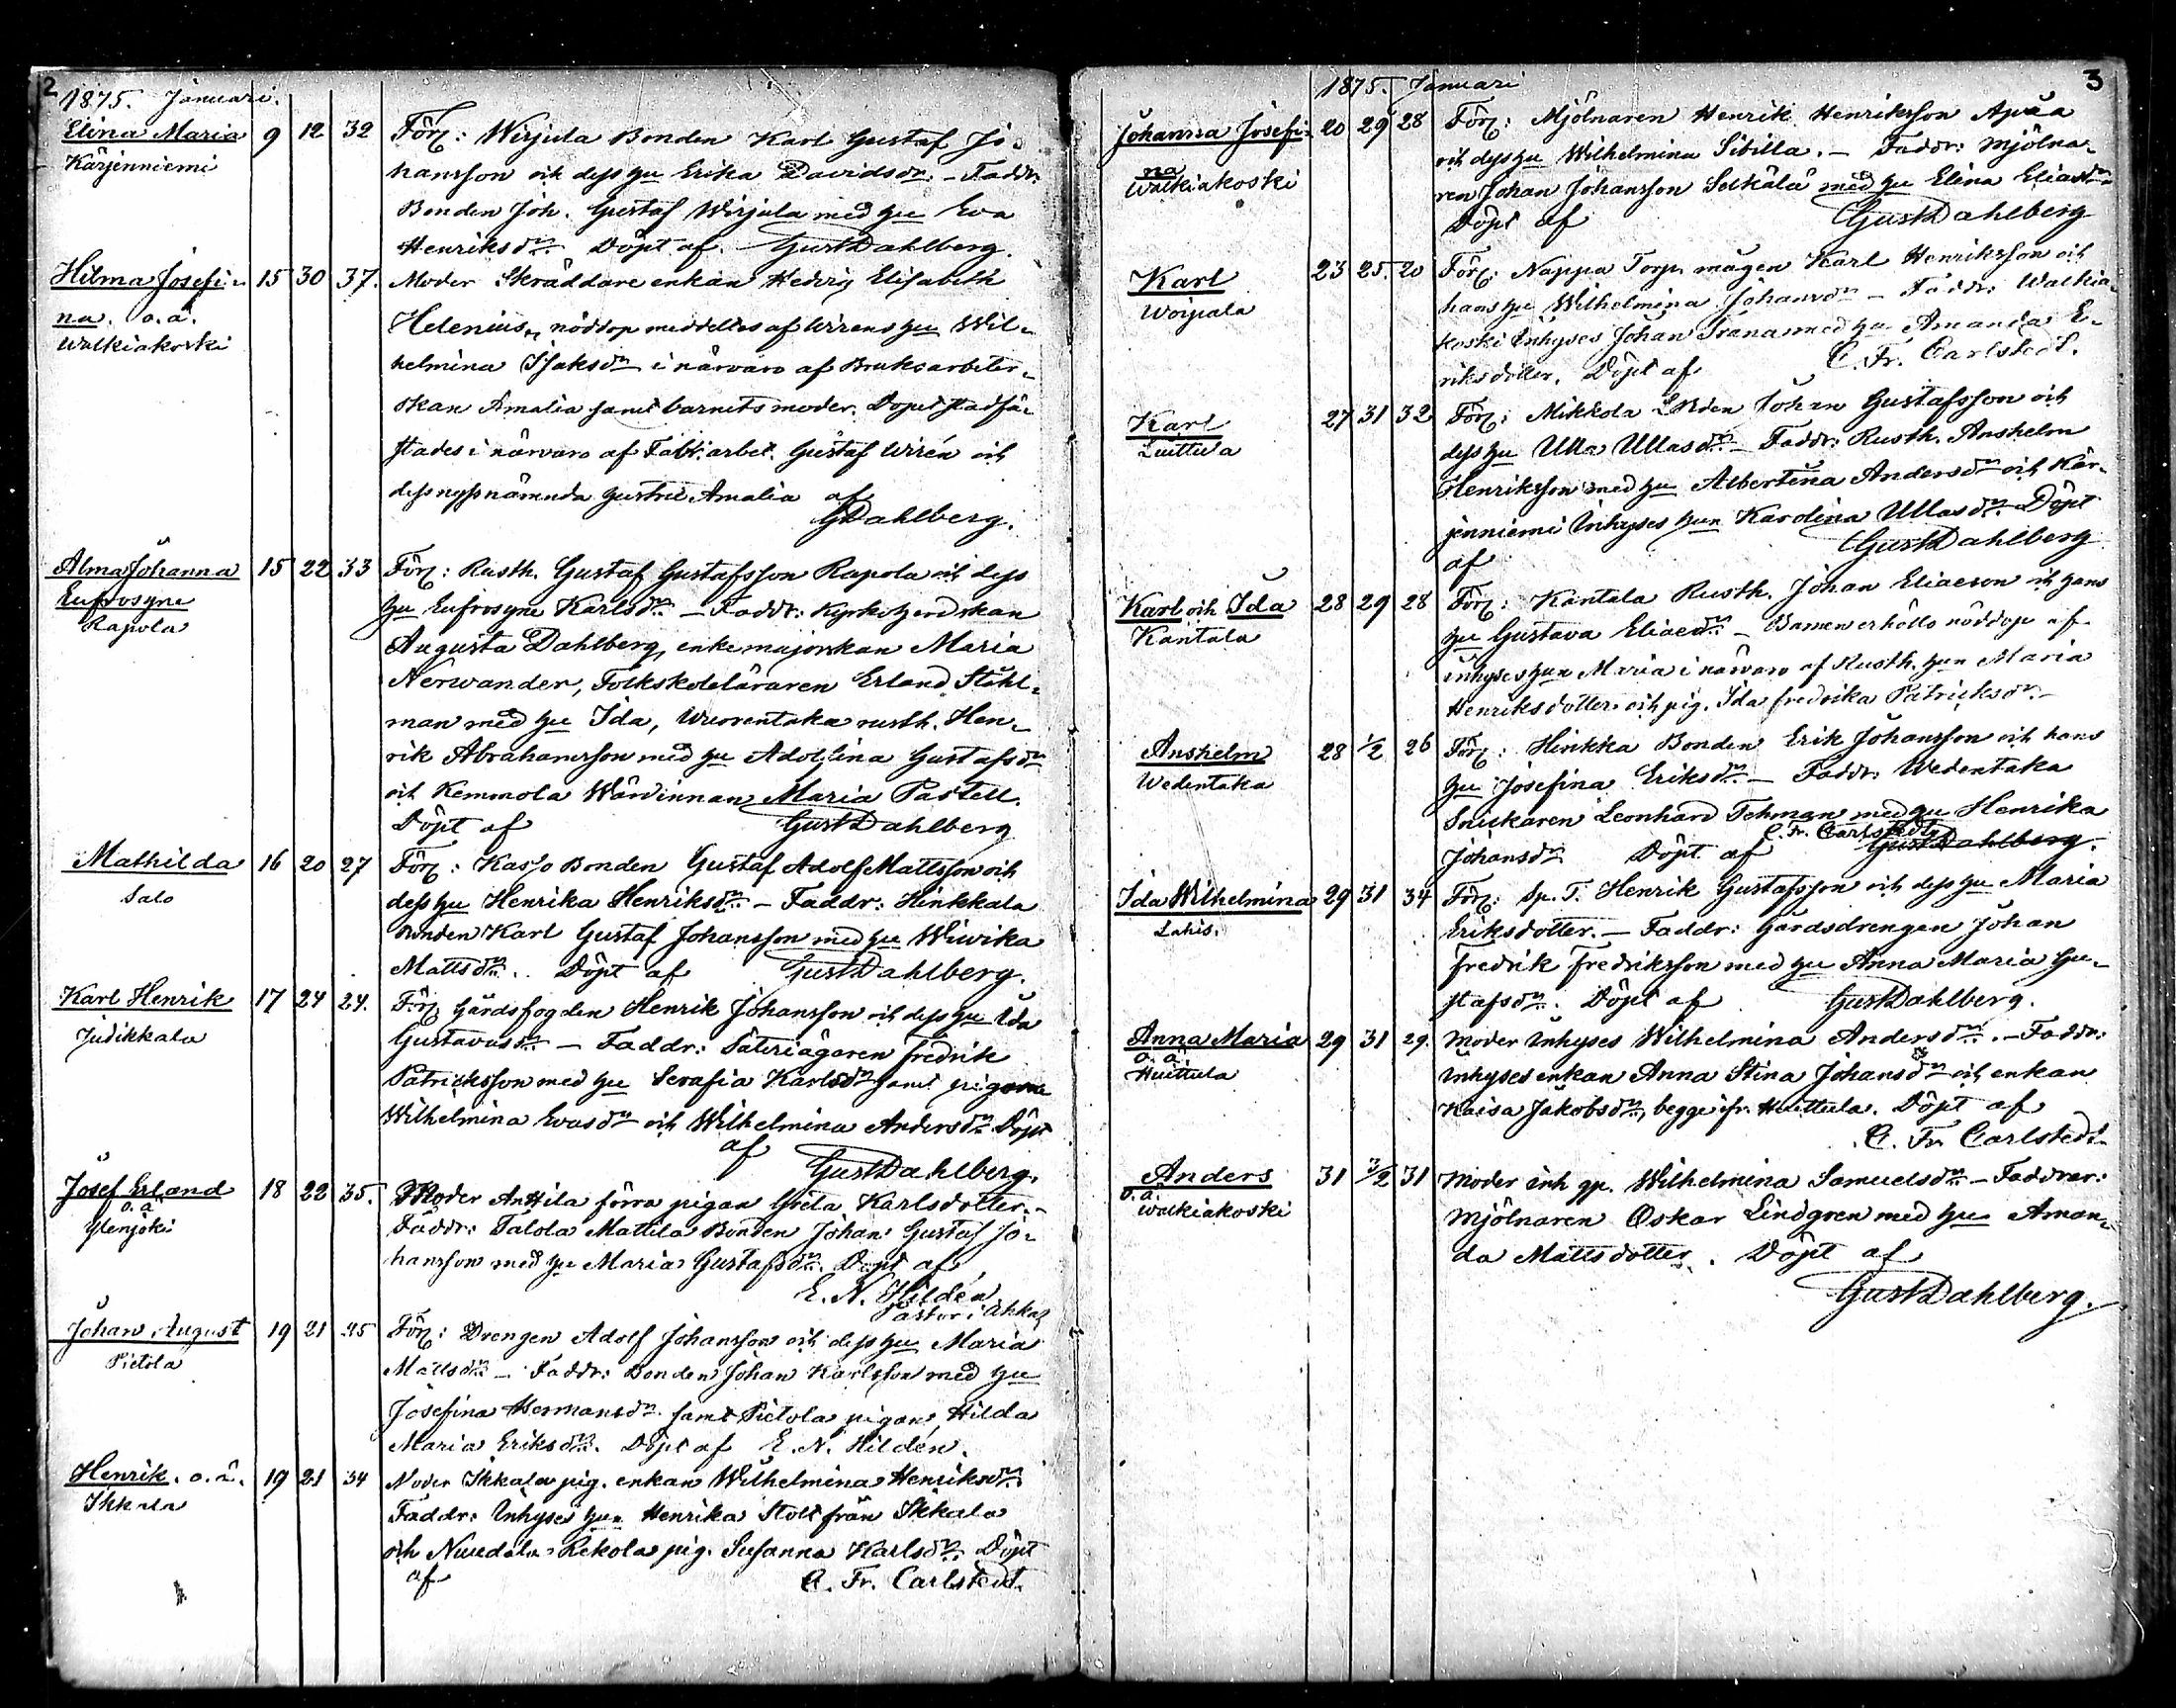 2
1875. Januari.
Elina Maria 9 12 32 Förj: Wirjula Bonden Karl Gustaf Jo-
Kärjenniemi hansson och dess hu Erika Davidsdr. - Faddr:
Bonden Joh. Gustaf Wirjula med hu Eva
Henriksdr. Döpt af Gust Dahlberg.
Hilma Josefi- 15 30 37. Moder Skräddare enkan Hedvig Elisabeth
na. o.ä. Helenius, nöddop meddeltes af Wirens hu Wil-
Walkiakoski helmina Isaksdr i närvaro af Bruksarbeter-
skan Amalia samt barnets moder. Dopet stadfä-
stades i närvaro af Fabr. arbet. Gustaf Wirén och
dess nyss nämnda hustru Amalia af
G Dahlberg.
Alma Johanna 15 22 33 Förj: Rusth. Gustaf Gustafsson Rapola och dess
Eufrosyne hu Eufrosyne Karlsdr. - Faddr: Kyrkoherdskan
Rapola Augusta Dahlberg, enkemajorskan Maria
Nerwander, Folkskoleläraren Erland Stähl-
man med hu Ida, Wuorentaka rusth. Hen-
rik Abrahamsson med hu Adolfina Gustafsdr
och Kemmola Wärdinnan Maria Pastell.
Döpt af Gust Dahlberg
Mathilda 16 20 27 Förj: Kasso Bonden Gustaf Adolf Mattsson och
Salo dess hu Henrika Henriksdr. - Faddr: Hinkkala
bonden Karl Gustaf Johansson med hu Wivika
Mattsdr. Döpt af Gust Dahlberg.
Karl Henrik 17 24 24. Förj. Gårdsfogden Henrik Johansson och dess hu Ida
Judikkala Gustavasdr - Faddr: Säteriägaren Fredrik
Patricksson med hu Serafia Karlsdr samt pigorna
Wilhelmina Evasdr och Wilhelmina Andersdr Döpt
af Gust Dahlberg.
Josef Erland 18 22 35. Moder Anttila förra pigan Greta Karlsdotter.-
o.ä Faddr: Talola Mattila Bonden Johan Gustaf Jo-
Ylenjoki hansson med hu Maria Gustafsdr. Döpt af
E. N. Hildén
Pastor i Ahkas
Johan August 19 21 25 Förj: Drengen Adolf Johansson och dess hu Maria
Pietola Mattsdr - Faddr: Bonden Johan Karlsson med hu
Josefina Hermansdr samt Pietola pigan Hilda
Maria Eriksdr. Döpt af E. N. Hildén.
Henrik. o.ä. 19 21 34 Moder Ikkala pig. enkan Wilhelmina Henriksdr
Ikkala Faddr: Inhyses hun Henrika Stolt från Ikkala
och Rekola pig. Susanna Karlsdr. Döpt
af A. Fr. Carlstedt.
1875. Januari 3
Johanna Josefi- 20 29 28 Förj: Mjölnaren Henrik Henriksson Apila
na och dess hu Wilhelmina Sibilla. - Faddr: Mjölna-
Walkiakoski ren Johan Johansson Selkälä med hu Elina Eliasdr
Döpt af Gust Dahlberg
Karl 23 25. 20 Förj: Nappa Torp. mågen Karl Henriksson och
Woipala hans hu Wilhelmina Johansdr - Faddr: Walkia-
koski Inhyses Johan Iräna med hu Amanda E-
riksdotter. Döpt af A. Fr. Carlstedt.
Karl 27 31 32 Förj: Mikkola Johan Gustafsson och
Luittula dess hu Ulla Ullasdr. - Faddr: Rusth. Anshelm
Henriksson med hu Albertina Andersdr och Kär-
jenniemi Inhyses hun Karolina Ullasdr. Döpt
af Gust Dahlberg
Karl och Ida 28 29 28 Förj: Kantala Rusth. Johan Eliaeson och hans
Kantala hu Gustava Eliaedr - Barnen erhöllo nöddop af
inhyses hun Maria i närvaro af Rusth. hun Maria
Henriksdotter och pig. Ida Fredrika Patricksdr.-
Anshelm 28 1/2 26 Förj: Hinkka Bonden Erik Johansson och hans
Wedentaka hu Josefina Eriksdr - Faddr: Wedentaka
Snickaren Leonhard Tehman med hu Henrika
Johansdr Döpt af A. Fr. Carlstedt Gust Dahlberg.
Ida Wilhelmina 29 31 34 Förj: Sp. T. Henrik Gustafsson och dess hu Maria
Lahis. Eriksdotter. - Faddr: Gårdsdrengen Johan
Fredrik Fredriksson med hu Anna Maria Gu-
stafsdr. Döpt af Gust Dahlberg.
Anna Maria 29 31 29. Moder Inhyses Wilhelmina Andersdr. - Faddr:
o.ä. Inhyses enkan Anna Stina Johansdr och enkan
Huittula Kaisa Jakobsdr, begge ifr. Huittula. Döpt af
A. Fr. Carlstedt
Anders 31 3/2 31 Moder inh. Wilhelmina Samuelsdr - Faddrar:
o.ä. Mjölnaren Oskar Lindgren med hu Aman-
Walkiakoski da Mattsdotter. Döpt af
Gust Dahlberg.